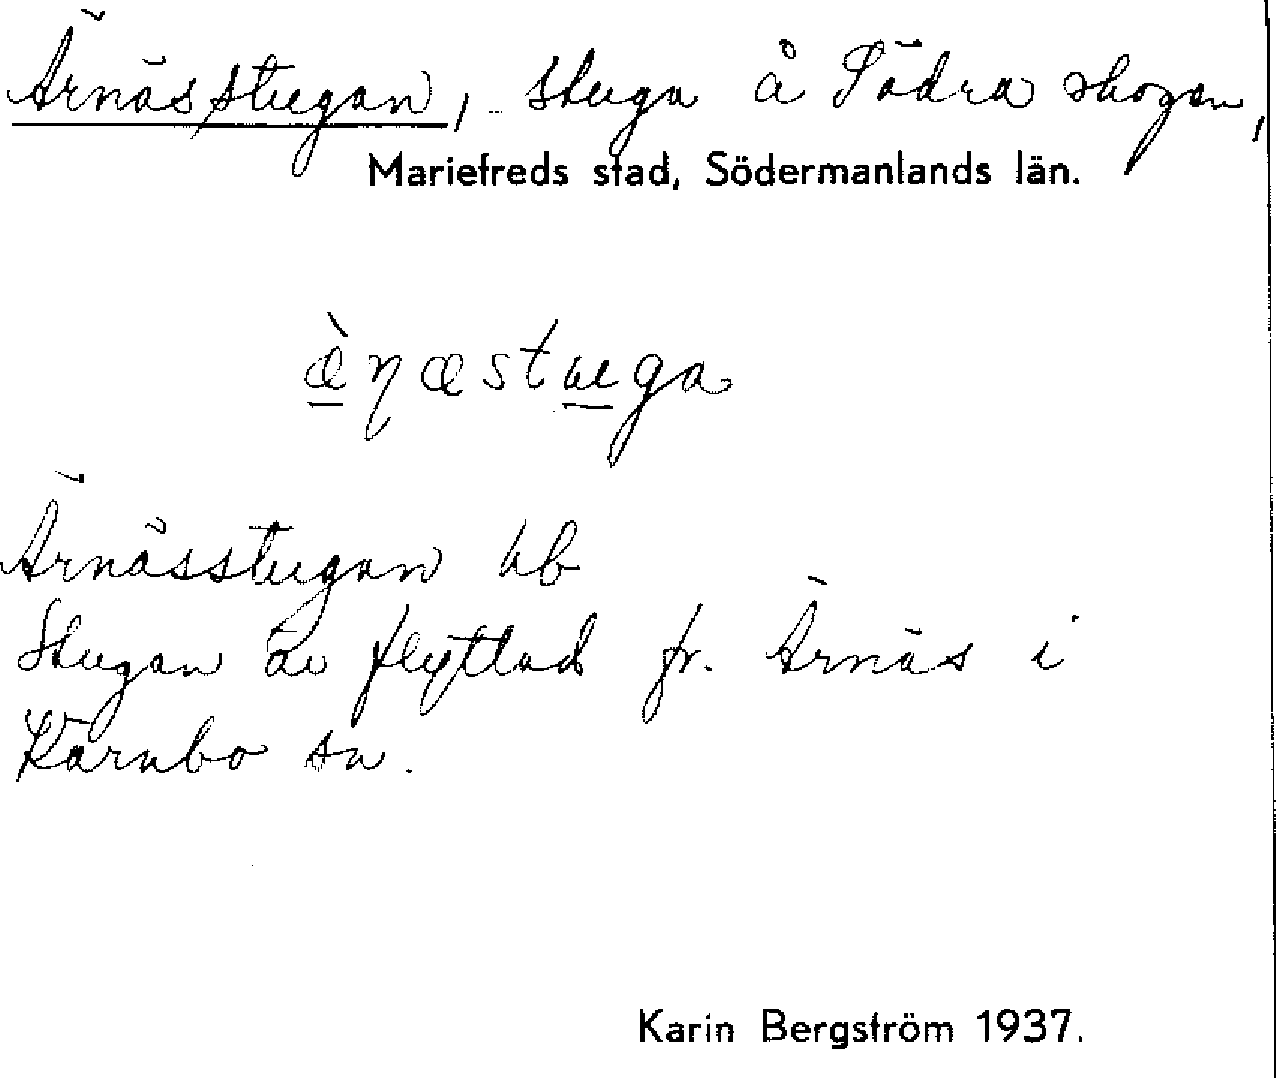 Ärnässtugan, stuga å Södra skogen,
Mariefreds stad, Södermanlands län.
æ̀ηæstuga
Ärnässtugan ub
Stugan är flyttad fr. Ärnäs i
Kärnbo sn.
Karin Bergström 1937.